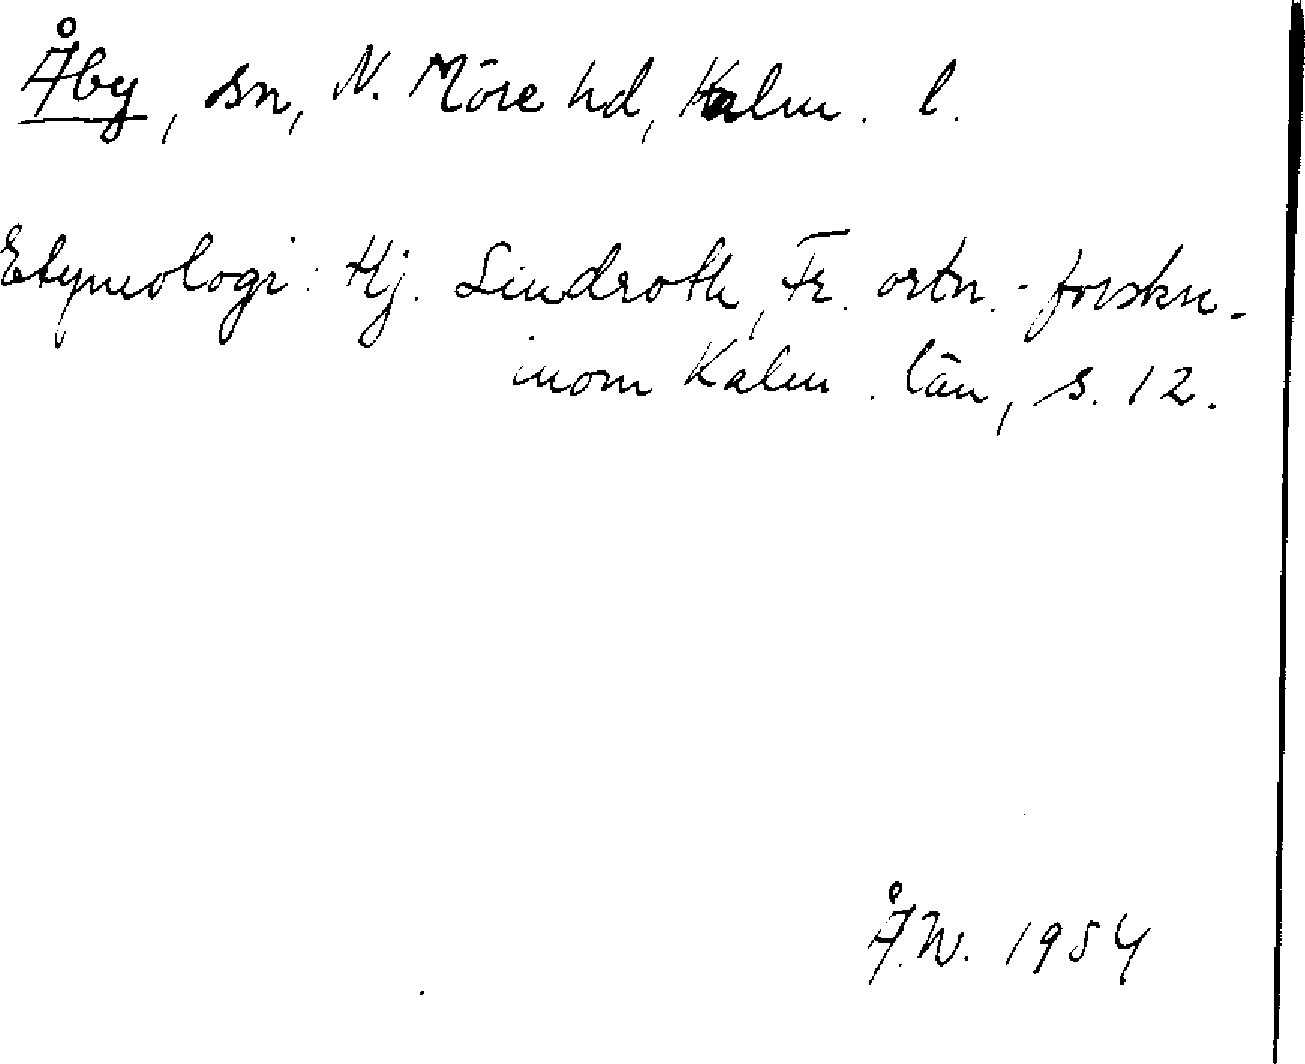 Åby, sn, N. Möre hd, Kalm. l.
Etymologi: Hj. Lindroth, Fr. ortn.-forskn.
inom Kalm. län, s. 12.
Å.W. 1954